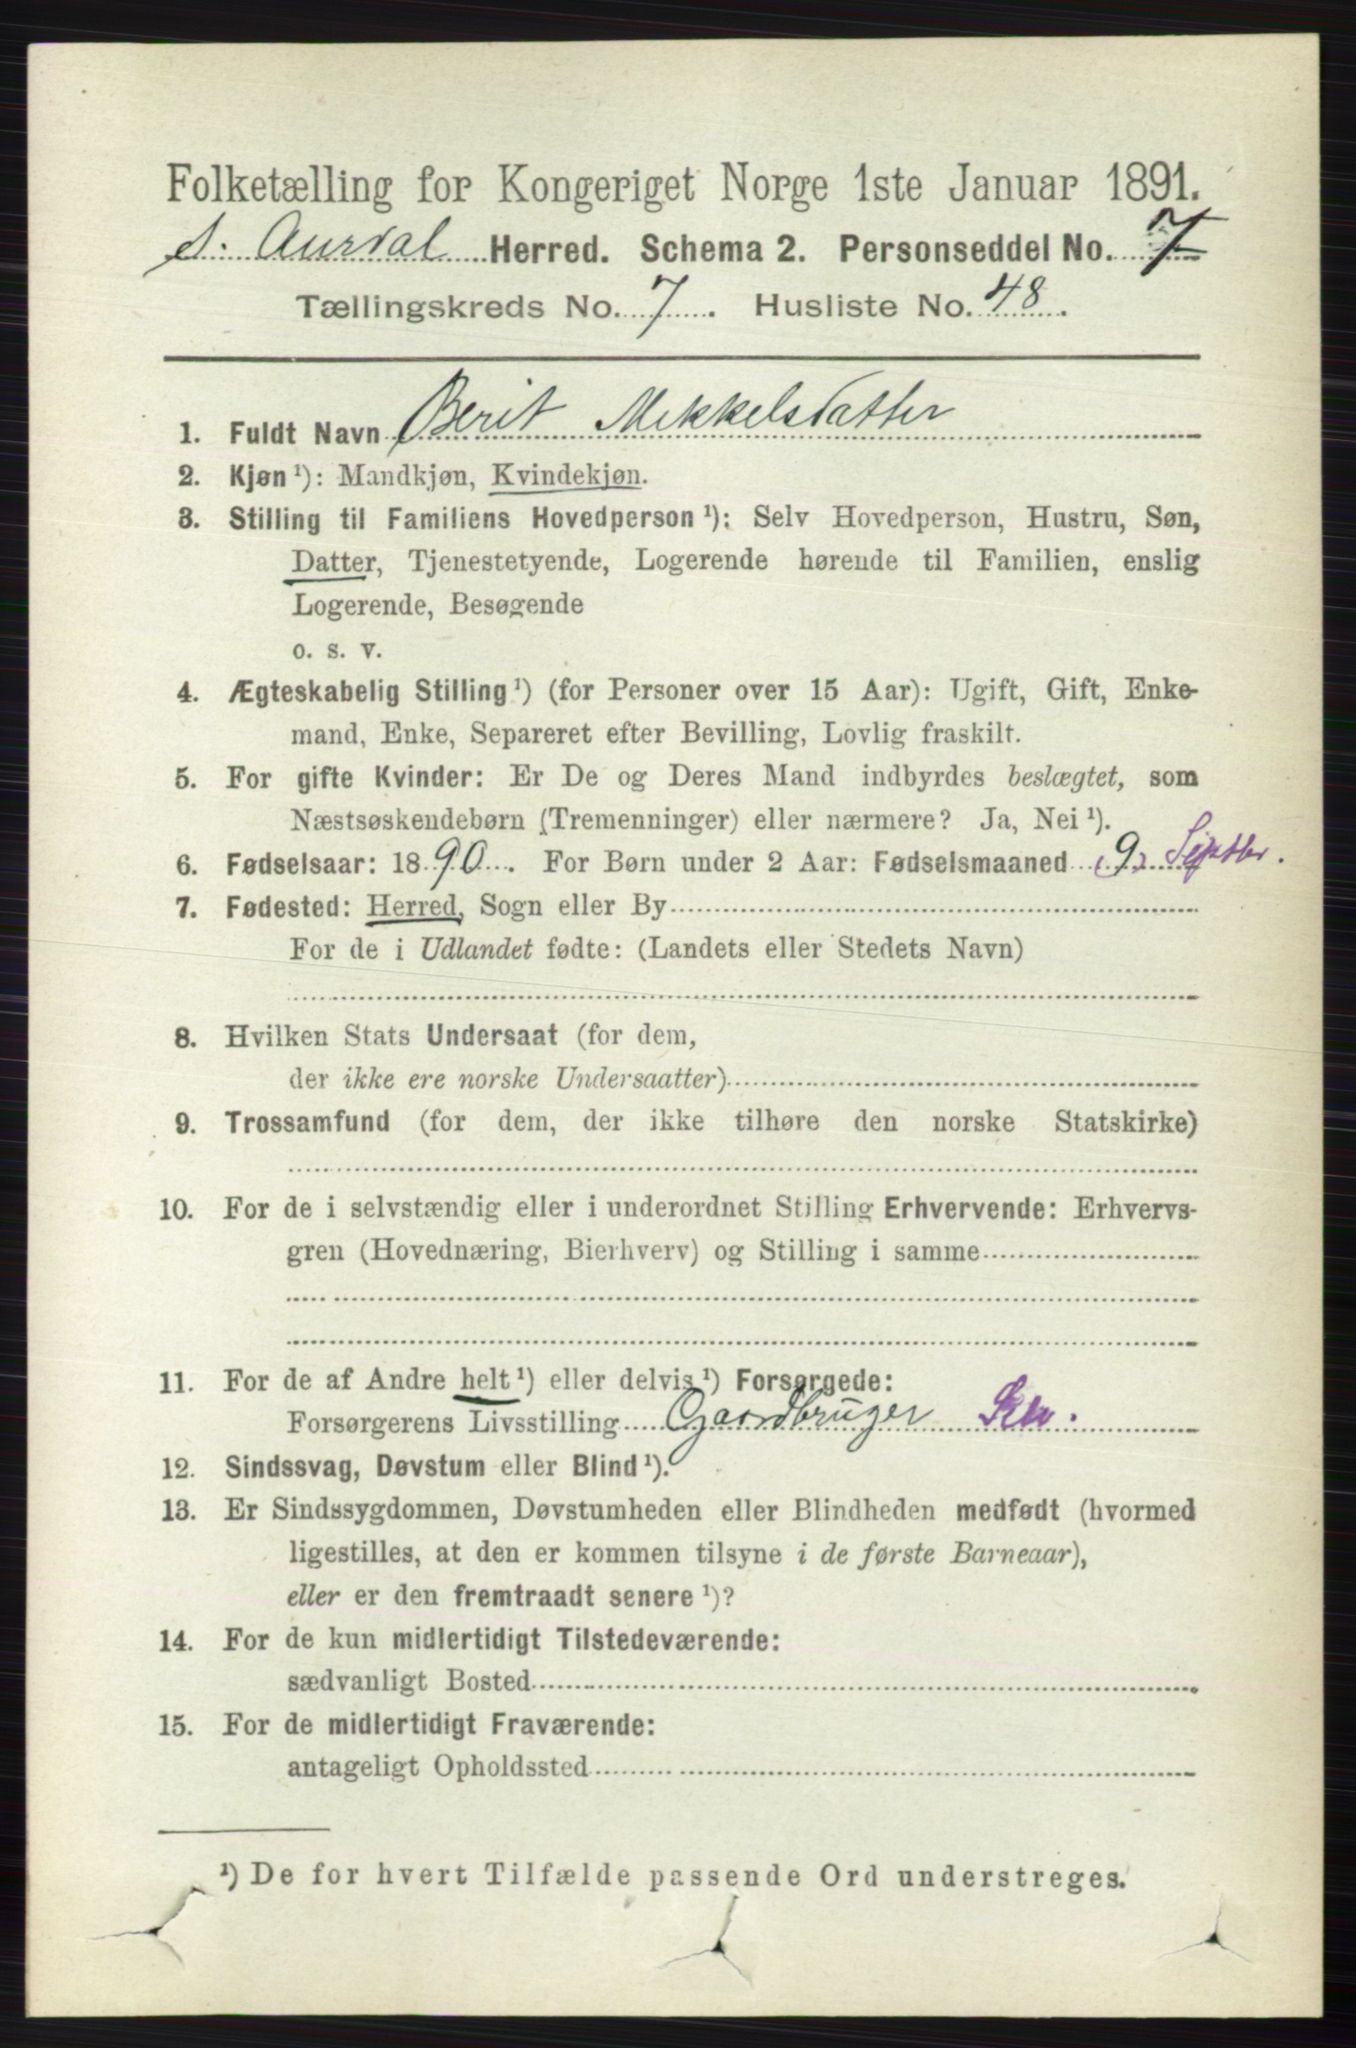 Folketælling for Kongeriget Norge 1ste Januar 1891.
S. Aurdal Herred. Schema 2. Personseddel No. 7
Tællingskreds No. 7. Husliste No. 48.
1. Fuldt Navn Berit Mekkelsdatter
2. Kjøn ¹): Mandkjøn, Kvindekjøn.
3. Stilling til Familiens Hovedperson ¹): Selv Hovedperson, Hustru, Søn,
Datter, Tjenestetyende, Logerende hørende til Familien, enslig
Logerende, Besøgende
o. s. v.
4. Ægteskabelig Stilling ¹) (for Personer over 15 Aar): Ugift, Gift, Enke-
mand, Enke, Separeret efter Bevilling, Lovlig fraskilt.
5. For gifte Kvinder: Er De og Deres Mand indbyrdes beslægtet, som
Næstsøskendebørn (Tremenninger) eller nærmere? Ja, Nei ¹).
6. Fødselsaar: 1890. For Børn under 2 Aar: Fødselsmaaned (9) Septbr.
7. Fødested: Herred, Sogn eller By
For de i Udlandet fødte: (Landets eller Stedets Navn)
8. Hvilken Stats Undersaat (for dem,
der ikke ere norske Undersaatter)
9. Trossamfund (for dem, der ikke tilhøre den norske Statskirke)
10. For de i selvstændig eller i underordnet Stilling Erhvervende: Erhvervs-
gren (Hovednæring, Bierhverv) og Stilling i samme
11. For de af Andre helt ¹) eller delvis ¹) Forsørgede:
Forsørgerens Livsstilling Gaardbruger Selv.
12. Sindssvag, Døvstum eller Blind ¹).
13. Er Sindssygdommen, Døvstumheden eller Blindheden medfødt (hvormed
ligestilles, at den er kommen tilsyne i de første Barneaar),
eller er den fremtraadt senere ¹)?
14. For de kun midlertidigt Tilstedeværende:
sædvanligt Bosted
15. For de midlertidigt Fraværende:
antageligt Opholdssted
¹) De for hvert Tilfælde passende Ord understreges.